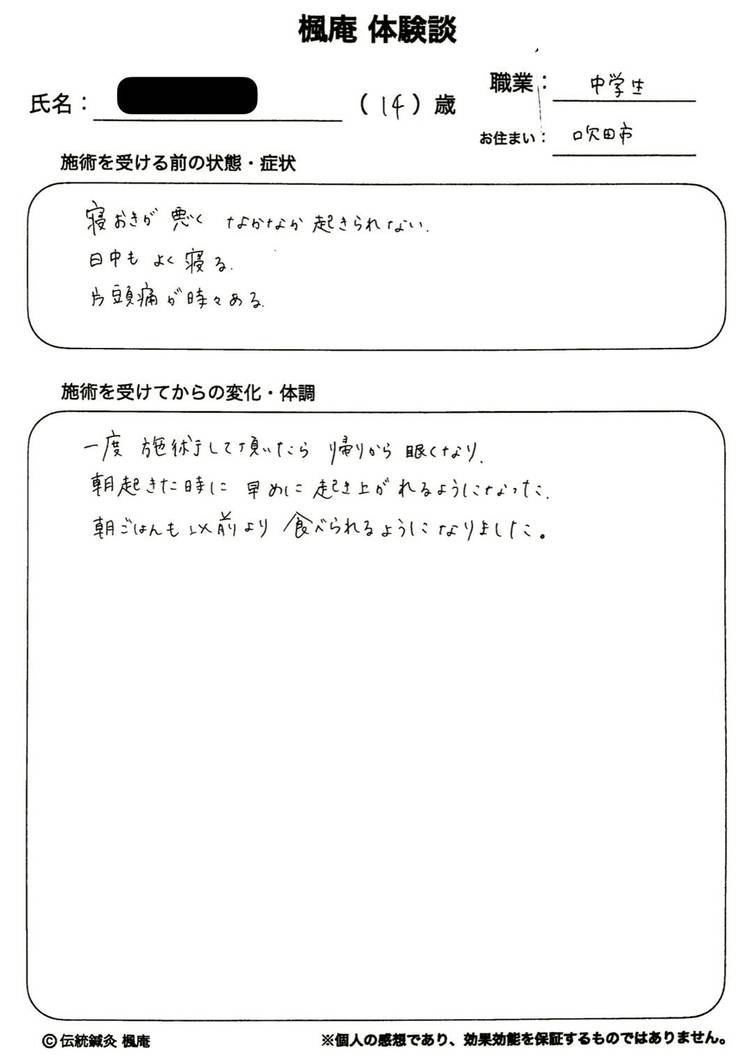 楓庵 体験談
氏名： （14）歳
職業： 中学生
お住まい： 吹田市
施術を受ける前の状態・症状
寝おきが 悪く なかなか 起きられない.
日中も よく 寝る.
片頭痛が時々ある.
施術を受けてからの変化・体調
一度 施術して頂いたら 帰りから 眠くなり.
朝起きた時に 早めに 起き上がれるようになった.
朝ごはんも 以前より 食べられるようになりました。
©伝統鍼灸 楓庵
※個人の感想であり、効果効能を保証するものではありません。